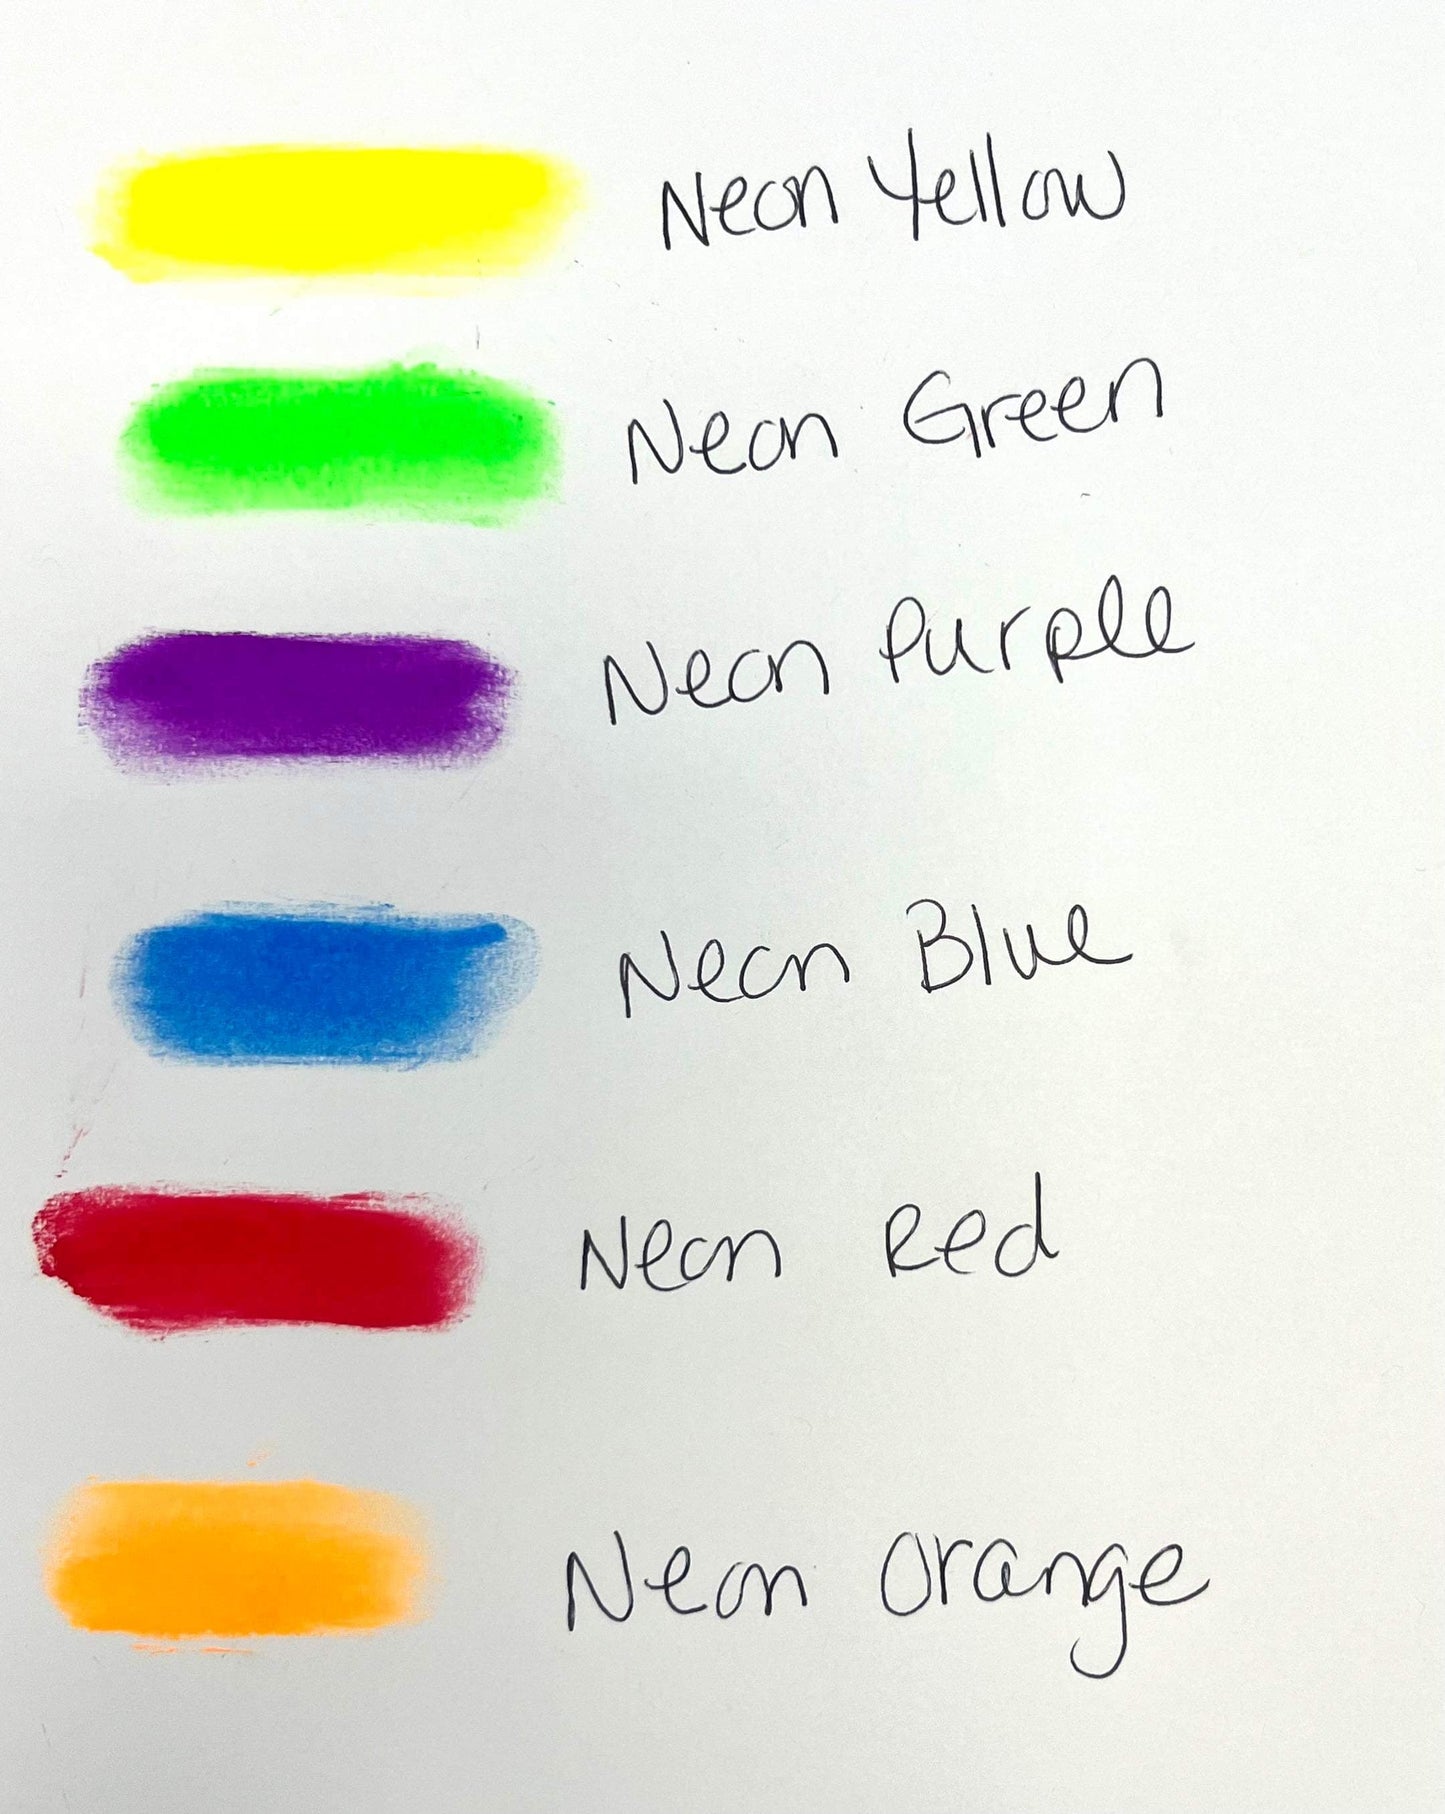 Neon Yellow
Neon Green
Neon Purple
Neon Blue
Neon Red
Neon Orange